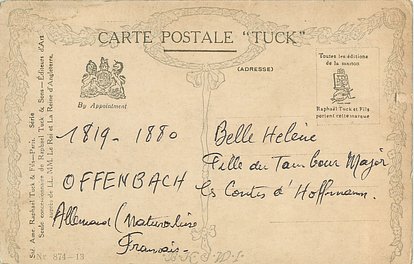 CARTE POSTALE "TUCK"
(ADRESSE)
Toutes les éditions
de la maison
Raphaël Tuck et Fils
portent cette marque
By Appointment
1819 - 1880
OFFENBACH
Allemand (Naturalisé
Français -
Belle Hélène
Fille du Tambour Major
Les Contes d'Hoffmann.
Soc. Ame. Raphaël Tuck & Fils - Paris. Série
Seule concessionnaire de Raphaël Tuck & Sons - Éditeurs d'Art
auprès de LL. MM. Le Roi et La Reine d'Angleterre.
No 874-13